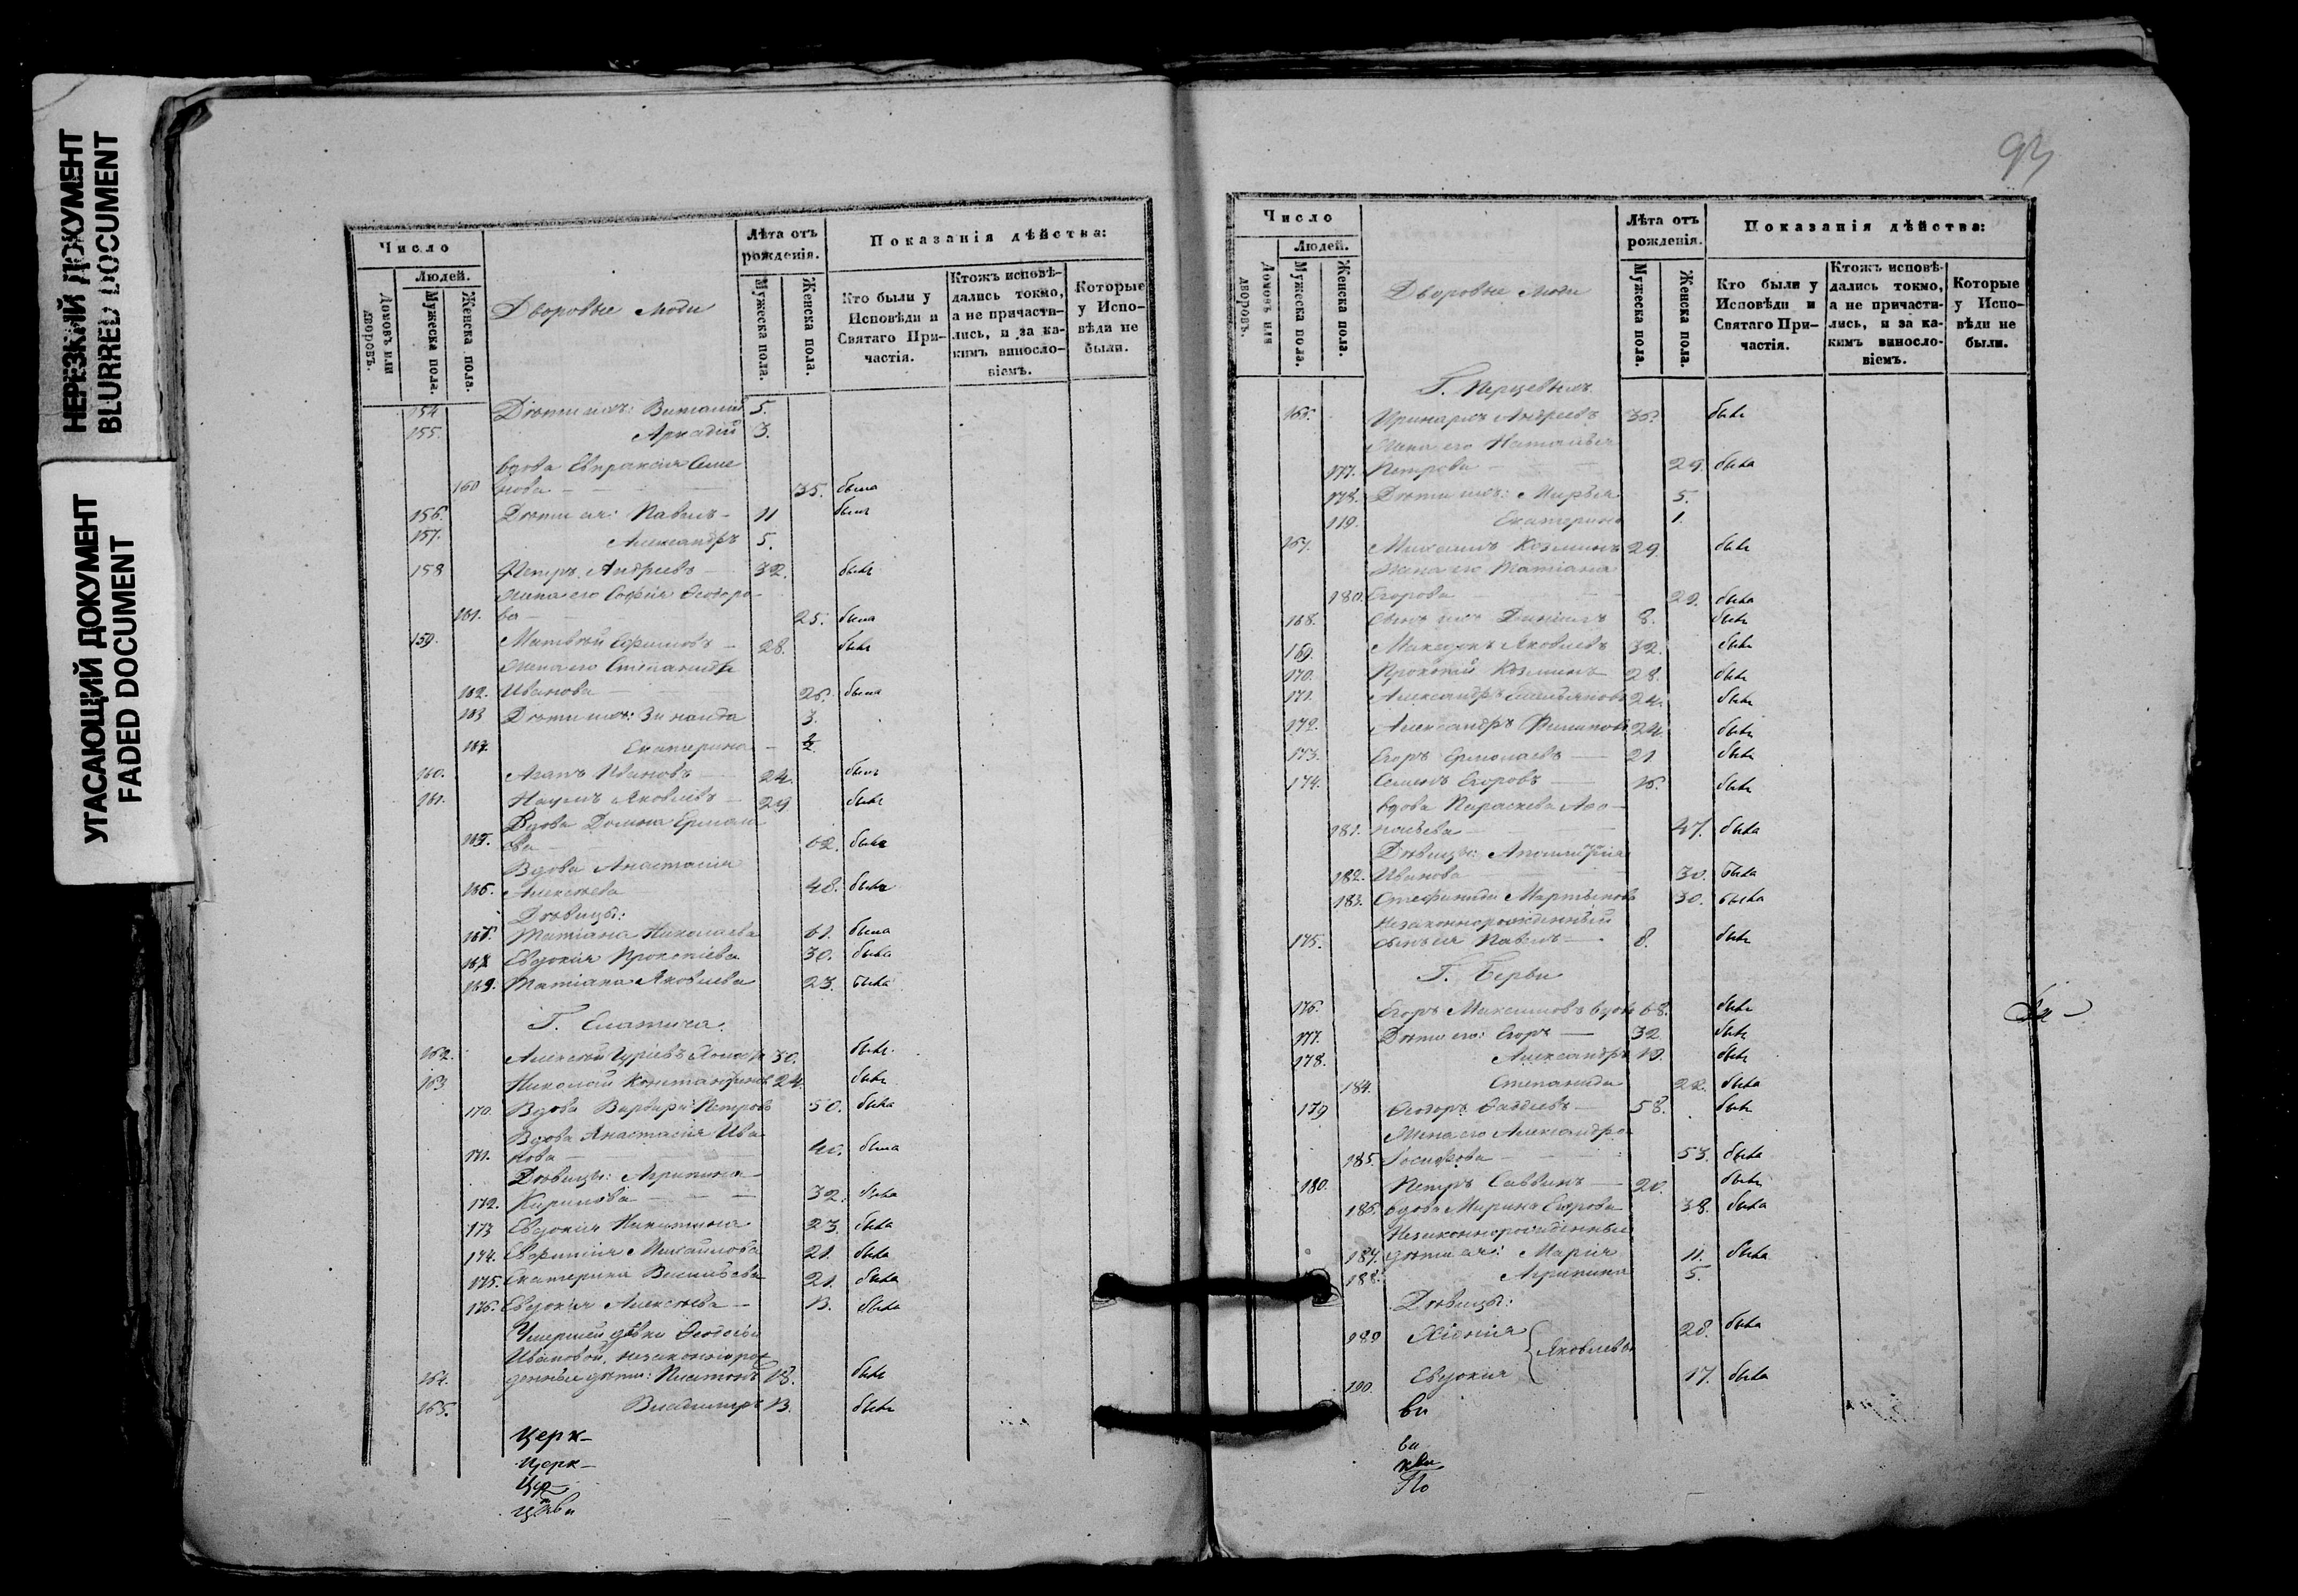 НЕРЕЗКИЙ ДОКУМЕНТ
BLURRED DOCUMENT
УГАСАЮЩИЙ ДОКУМЕНТ
FADED DOCUMENT
Число
Людей.
Домовъ или дворовъ.
Мужеска пола.
Женска пола.
Дворовые люди
Лѣта отъ рожденія.
Мужеска пола.
Женска пола.
Показанія дѣйства:
Кто были у Исповѣди и Святаго Причастія.
Ктожъ исповѣдались токмо, а не причастились, и за какимъ винословіемъ.
Которые у Исповѣди не были.
154 Дѣти ихъ: Виталій 5.
155. Аркадій 3.
вдова Евпраксія Семе
160 нова 35. была
156. Дѣти ея: Павелъ 11 былъ
157. Александръ 5.
158 Петръ Андреевъ 32. былъ
Жена его Софія Ѳеодоро
161. ва 25. была
159. Матвѣй Ефимовъ 28. былъ
Жена его Степанида
162. Иванова 26. была
163 Дѣти ихъ: Зинаида 3.
164. Екатерина ½
160. Агапъ Ивановъ 24. былъ
161. Наумъ Яковлевъ 29 былъ
Вдова Домна Ермола
165. ева 62. была
Вдова Анастасія
166. Алексѣева 48. была
Дѣвицы:
Татіана Николаева 61. была
Евдокія Прокопіева 30. была
169. Татіана Яковлева 23. была
Г.
162. Алексѣй Гуріевъ 30. былъ
163 Николай Константиновъ 24. былъ
170. Вдова Варвара Петрова 50. была
Вдова Анастасія Ива
171. нова была
Дѣвицы: Агрипина
172. Кирилова 32. была
173 Евдокія Никитина 23. была
174. Евфимія Михаилова 21. была
175. Екатерина Васильева 21. была
176. Евдокія Алексѣева 13. была
Умершей дѣвки Ѳеодосіи
Ивановой, незаконнорож
164. денные дѣти: Платонъ 18. былъ
165. Владимиръ 13. былъ
Церк-
Церк-
93
Число
Людей.
Домовъ или дворовъ.
Мужеска пола.
Женска пола.
Дворовые люди
Лѣта отъ рожденія.
Мужеска пола.
Женска пола.
Показанія дѣйства:
Кто были у Исповѣди и Святаго Причастія.
Ктожъ исповѣдались токмо, а не причастились, и за какимъ винословіемъ.
Которые у Исповѣди не были.
Г.
166. Иринархъ Андреевъ 36. былъ
Жена его Наталья
177. Петрова 29. была
178. Дѣти ихъ: Марѳа 5.
179. Екатерина 1.
167. Михаилъ Козминъ 29. былъ
Жена его Татіана
180. Егорова 29. была
168. Сынъ ихъ Даніилъ 8. былъ
169. Яковлевъ 32. былъ
170. Прокопій Козминъ 28. былъ
171. Александръ 24. былъ
172. Александръ Филиповъ 24. былъ
173. Егоръ Ермолаевъ 21 былъ
174. Семенъ Егоровъ 16. былъ
вдова Параскева Аѳо-
181. насьева 47. была
Дѣвицы:
182. Иванова 30. была
183. Стефанида Мартынова 30. была
Незаконнорожденный
175. сынъ ея Павелъ 8. былъ
Г. Берви
176. Егоръ Максимовъ вдов 68. былъ
177. Дѣти его: Егоръ 32 былъ
178. Александръ 19. былъ
184. Степанида 22. была
179 Ѳеодоръ Ѳаддеевъ 58. былъ
Жена его Александра
185. Іосифова 53. была
180. Петръ Саввинъ 20. былъ
186. вдова Марина Егорова 38. была
Незаконнорожденные
187. дѣти ея: Марія 11. была
188. Агрипина 5.
Дѣвицы:
189 Хіонія 28. была
Яковлевы
190. Евдокія 17. была
ви
ви
кви
По